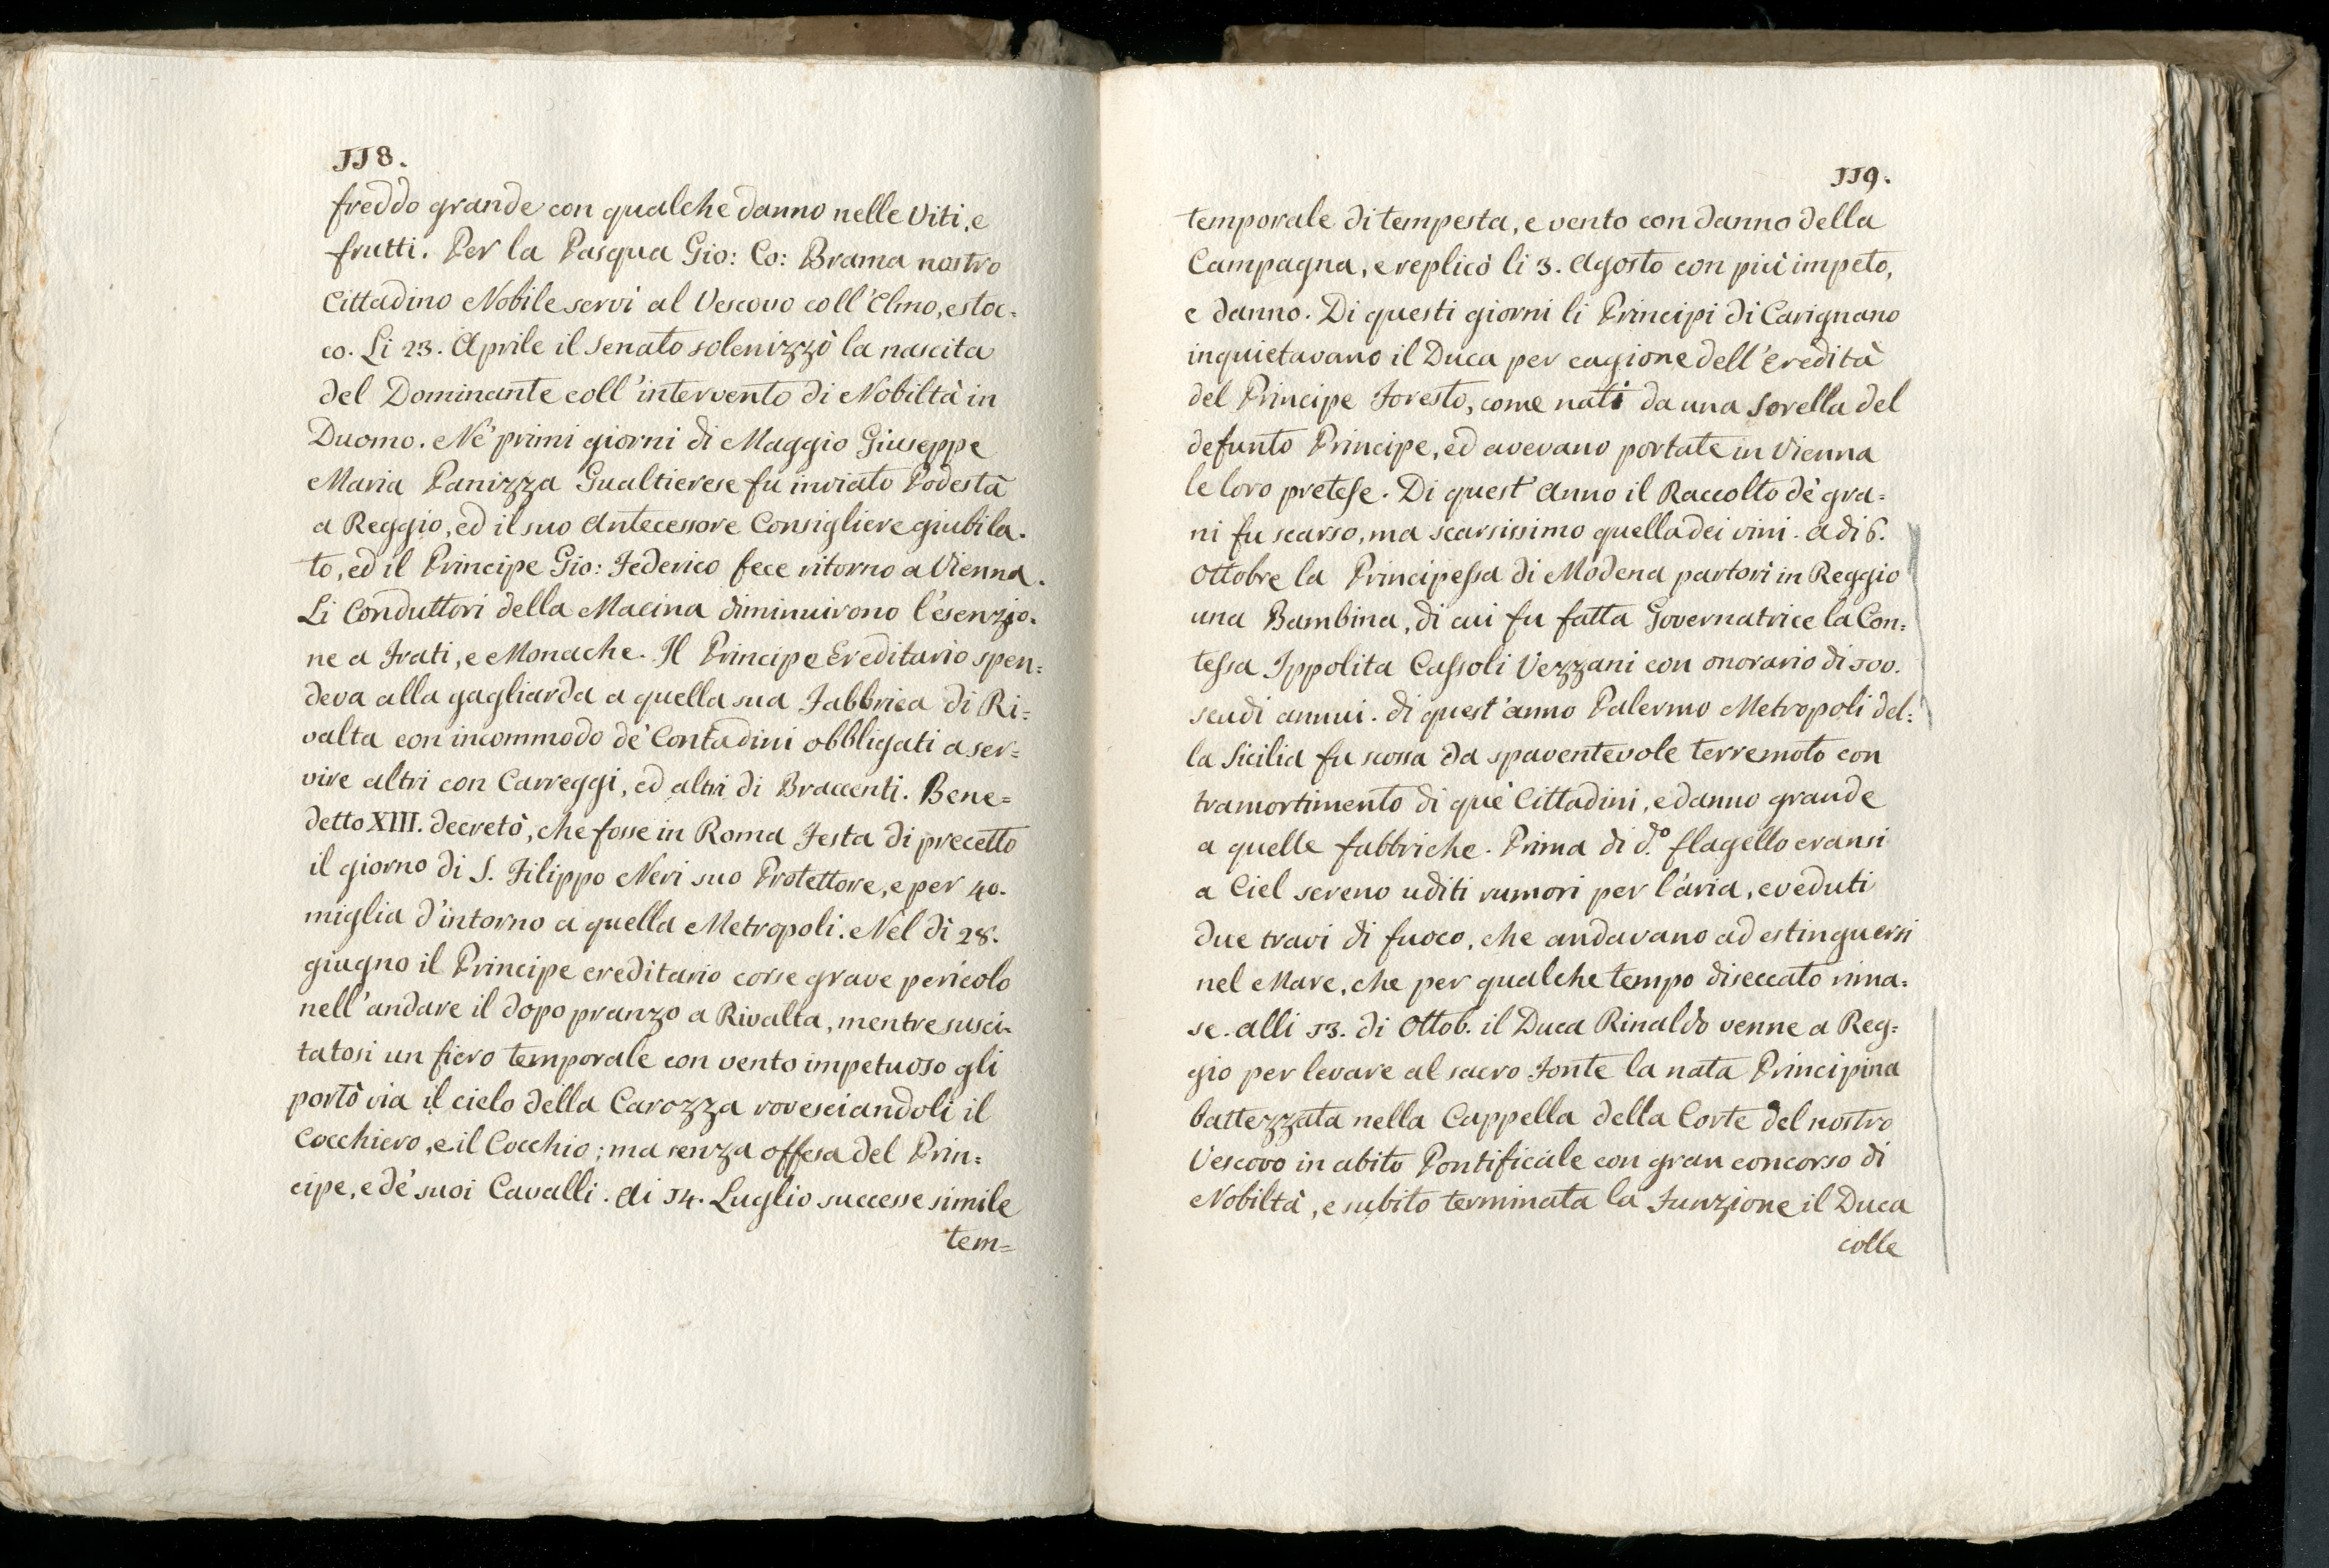 118.
freddo grande con qualche danno nelle Viti, e
frutti. Per la Pasqua Gio: Co: Brama nostro
Cittadino Nobile servì al Vescovo coll'Elmo, e stoc=
co. Li 23. Aprile il Senato solenizzò la nascita
del Dominante coll'intervento di Nobiltà in
Duomo. Nè primi giorni di Maggio Giuseppe
Maria Panizza Gualtierese fu inviato Podestà
a Reggio, ed il suo Antecessore Consigliere giubila.
to, ed il Principe Gio: Federico fece ritorno a Vienna.
Li Conduttori della Macina diminuirono l'esenzio.
ne a Frati, e Monache. Il Principe Ereditario spen=
deva alla gagliarda a quella sua Fabbrica di Ri=
valta con incommodo dè Contadini obbligati a ser=
vire altri con Carreggi, ed altri di Braccenti. Bene=
detto XIII. decretò, che fosse in Roma Festa di precetto
il giorno di S. Filippo Neri suo Protettore, e per 40.
miglia d'intorno a quella Metropoli. Nel dì 28.
giugno il Principe ereditario corse grave pericolo
nell'andare il dopo pranzo a Rivalta, mentre susci-
tatosi un fiero temporale con vento impetuoso gli
portò via il cielo della Carozza rovesciandoli il
Cocchiero, e il Cocchio; ma senza offesa del Prin=
cipe, e dè suoi Cavalli. Ai 14. Luglio successe simile
tem=
119.
temporale di tempesta, e vento con danno della
Campagna, e replicò li 3. Agosto con più impeto,
e danno. Di questi giorni li Principi di Carignano
inquietavano il Duca per cagione dell'Eredità
del Principe Foresto, come nati da una Sorella del
defunto Principe, ed avevano portate in Vienna
le loro pretese. Di quest'Anno il Raccolto dè gra=
ni fu scarso, ma scarsissimo quella dei vini. a di 6.
Ottobre la Principessa di Modena partorì in Reggio
una Bambina, di cui fu fatta Governatrice la Con=
tessa Ippolita Cassoli Vezzani con onorario di 100.
scudi annui. di quest'anno Palermo Metropoli del=
la Sicilia fu scossa da spaventevole terremoto con
tramortimento di què Cittadini, e danno grande
a quelle fabbriche. Prima di d.º flagello eransi
a Ciel sereno uditi rumori per l'aria, e veduti
due travi di fuoco, che andavano ad estinguersi
nel Mare, che per qualche tempo diseccato rima=
se. alli 13. di Ottob. il Duca Rinaldo venne a Reg=
gio per levare al sacro Fonte la nata Principina
battezzata nella Cappella della Corte del nostro
Vescovo in abito Pontificale con gran concorso di
Nobiltà, e subito terminata la Funzione il Duca
colle